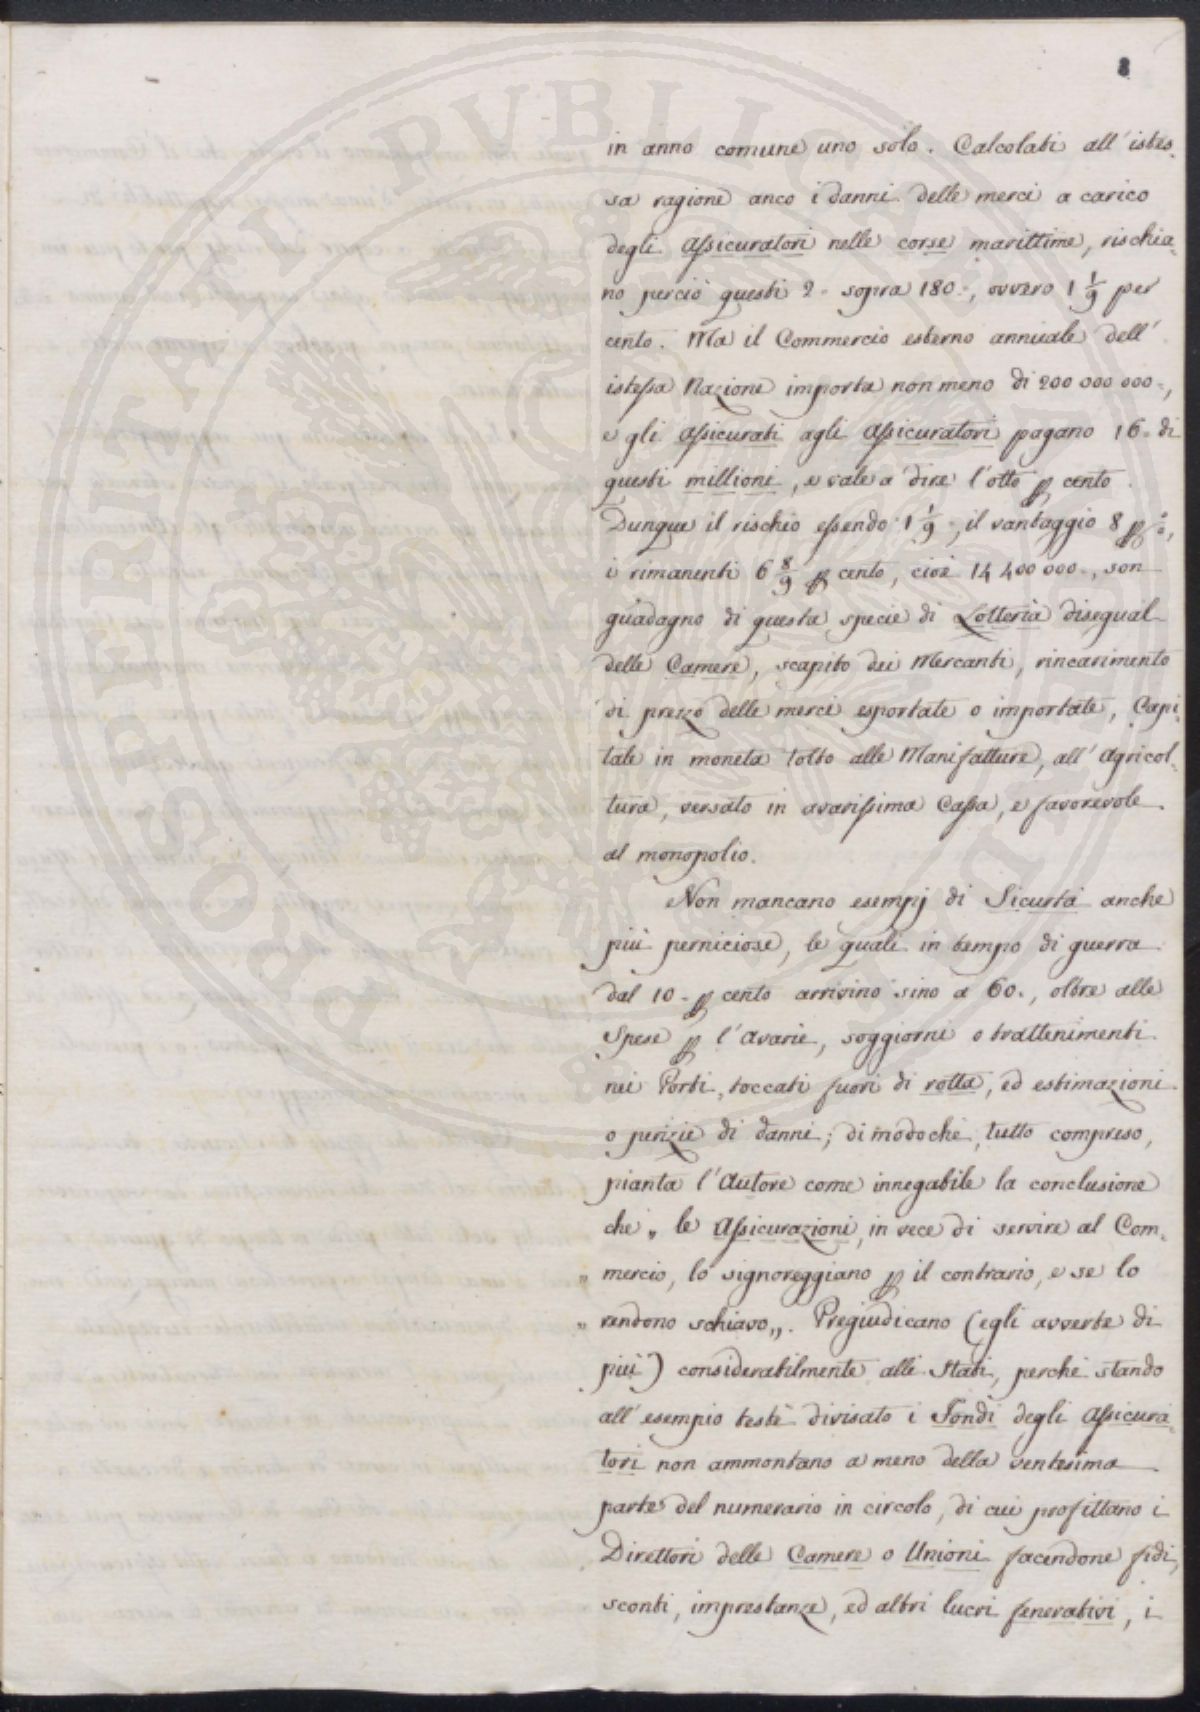 8
in anno comune uno solo. Calcolati all' istes-
sa ragione anco i danni delle merci a carico
degli Assicuratori nelle corse marittime, rischia-
no perciò questi 2. sopra 180., ovvero 1 1/9 per
cento. Ma il Commercio esterno annuale dell'
istessa Nazione importa non meno di 200 000 000.,
e gli Assicurati agli Assicuratori pagano 16. di
questi millioni, e vale a dire l'otto p cento.
Dunque il rischio essendo 1 1/9., il vantaggio 8 p %,
i rimanenti 6 8/9 p cento, cioè 14 400 000., son
guadagno di questa specie di Lotteria disegual
delle Camere, scapito dei Mercanti, rincarimento
di prezzo delle merci esportate o importate, Capi-
tale in moneta tolto alle Manifatture, all' Agricol-
tura, versato in avarissima Cassa, e favorevole
al monopolio.
Non mancano esempj di Sicurtà anche
più perniciose, le quali in tempo di guerra
dal 10. p cento arrivino sino a 60., oltre alle
Spese p l'Avarie, soggiorni o trattenimenti
nei Porti, toccati fuori di rotta, ed estimazioni
o perizie di danni; di modo chè, tutto compreso,
pianta l'Autore come innegabile la conclusione
che „ le Assicurazioni, in vece di servire al Com-
„ mercio, lo signoreggiano p il contrario, e se lo
„ rendono schiavo„. Pregiudicano (egli avverte di
più) considerabilmente alli Stati, perchè stando
all' esempio testè divisato i Fondi degli Assicura-
tori non ammontano a meno della ventesima
parte del numerario in circolo, di cui profittano i
Direttori delle Camere o Unioni facendone fidi,
sconti, imprestanze, ed altri lucri fenerativi, i
POSPERITATI PVBLICAE